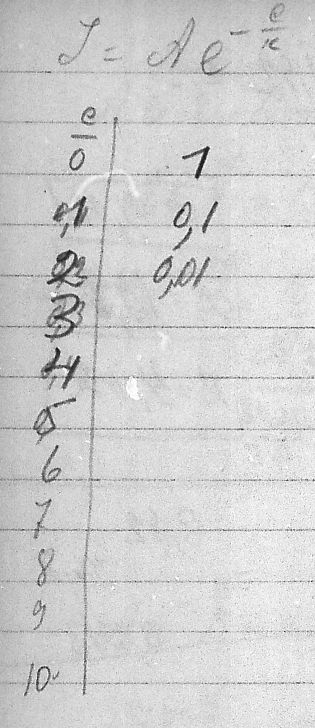 J = A e^{-e/κ}
e
0 1
1 0,1
2 0,01
3
4
5
6
7
8
9
10